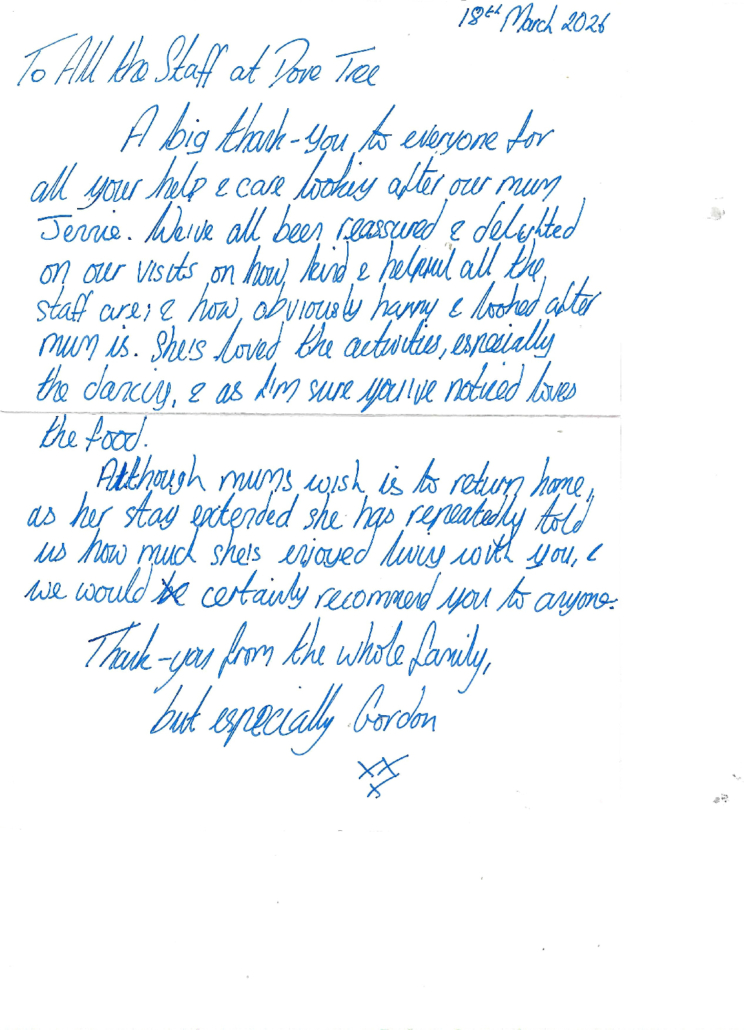 18th March 2026
To All the Staff at Dove Tree
A big thank-you to everyone for
all your help & care looking after our mum
Jennie. We've all been reassured & delighted
on our visits on how kind & helpful all the
staff are; & how obviously happy & looked after
mum is. She's loved the activities, especially
the dancing, & as I'm sure you've noticed loves
the food.
Although mums wish is to return home,
as her stay extended she has repeatedly told
us how much she's enjoyed living with you, &
we would certainly recommend you to anyone.
Thank-you from the whole family,
but especially Gordon
xx
x